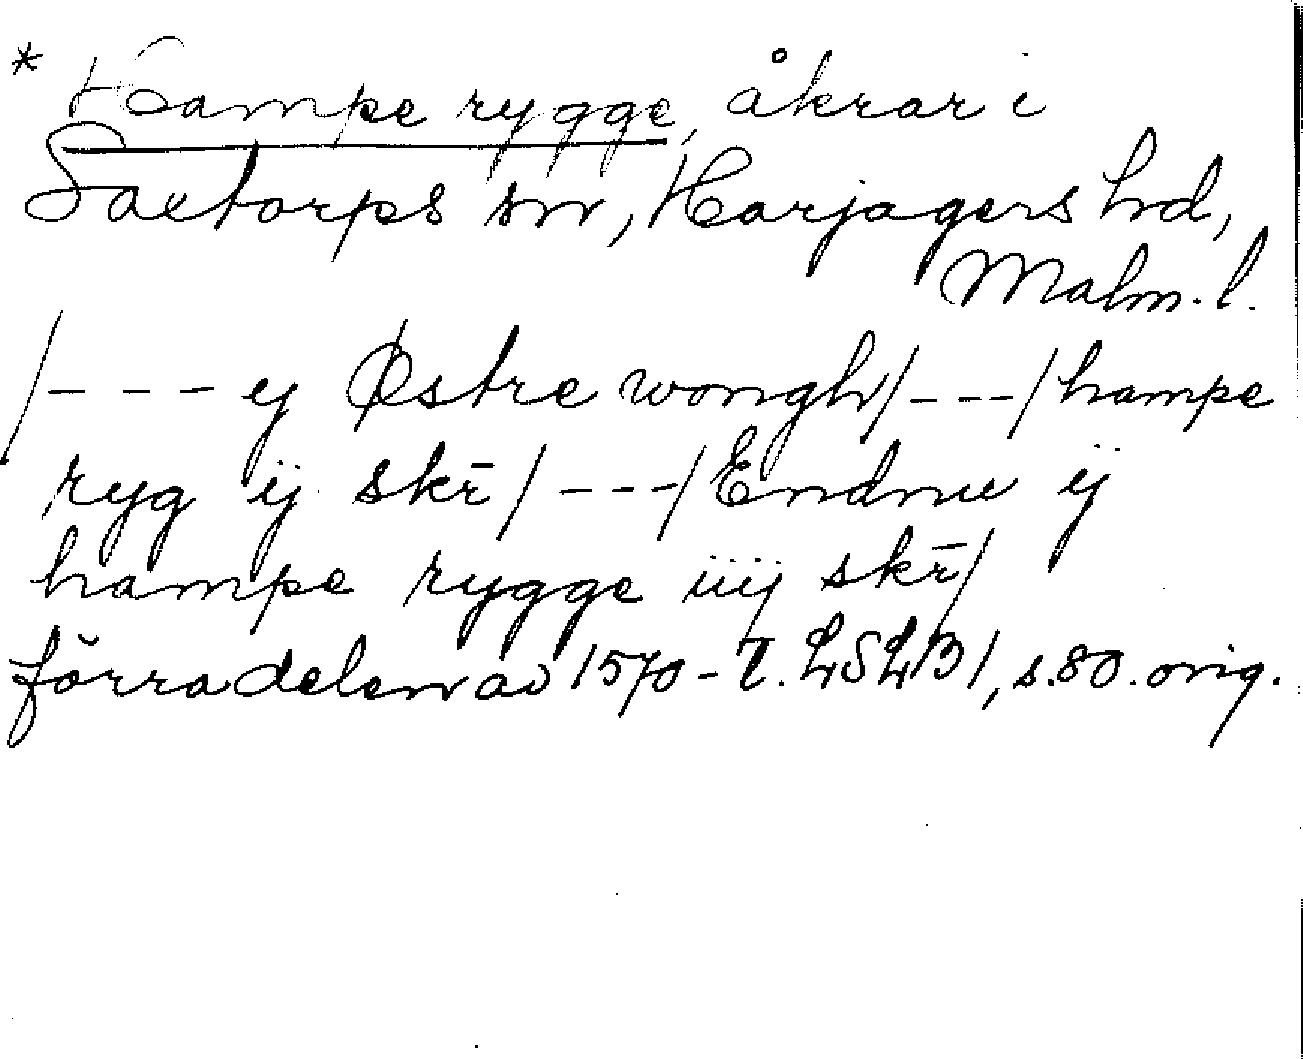 * Hampe rygge, åkrar i
Saxtorps sn, Harjagers hd,
Malm. l.
/- - - ej Østre wongh/- - -/hampe
ryg ij skr̄/- - -/Endnu ij
hampe rygge iiij skr̄/
förra delen av 1570-t. LSLB1, s.80. orig.